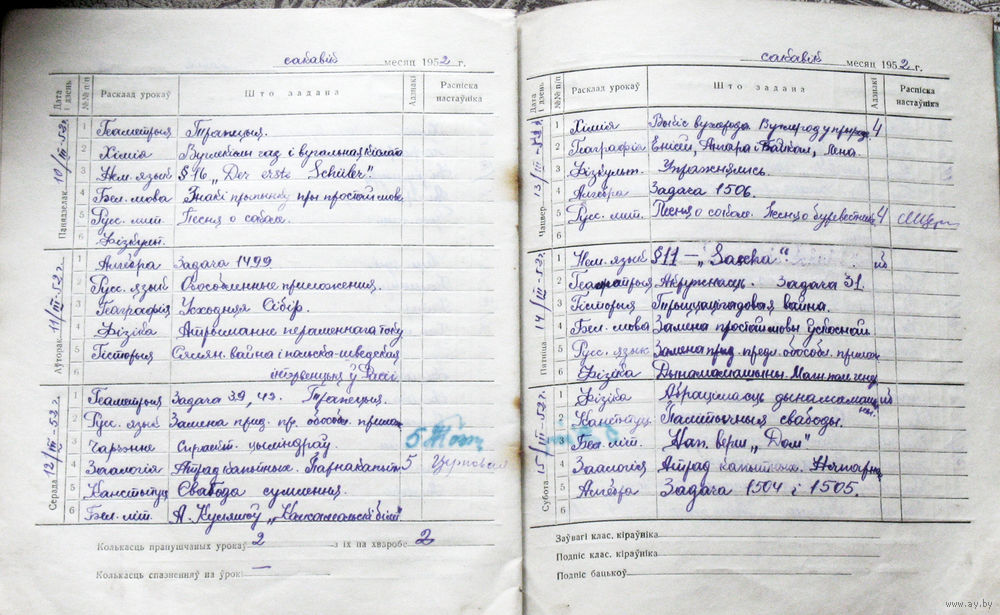 сакавік месяц 1952 г.
Дата і дзень №№ п/п Расклад урокаў Што задана Адзнакі Распіска настаўніка
Панядзелак 10/III-52 г.
1 Геаметрыя Трапецыя.
2 Хімія Вуглекіслы газ і вугальная кіслата
3 Ням. язык § 16 „Der erste Schüler"
4 Бел. мова Знакі прыпынку пры простай мове
5 Русс. лит. Песня о соколе.
6 Фізкульт.
Аўторак 11/III-52 г.
1 Алгебра Задача 1499
2 Русс. язык Обособленные приложения.
3 Геаграфія Усходняя Сібір.
4 Фізіка Атрыманне пераменнага току
5 Гісторыя Сялян. вайна і польска-шведская
6 інтэрвенцыя ў Расіі
Серада 12/III-52 г.
1 Геаметрыя Задача 39, 42. Трапецыя.
2 Русс. язык Замена прид. пр. обособл. прилож
3 Чарчэнне Спралкт. цыліндраў 5
4 Заалогія Атрад капытных. Парнакапыт 5
5 Канстытуц Свабода сумлення.
6 Бел. літ. А. Куляшоў „Камсамольскі білет"
Колькасць прапушчаных урокаў 2 з іх на хваробе 2
Колькасць спазненняў на ўрокі —
сакавік месяц 1952 г.
Дата і дзень №№ п/п Расклад урокаў Што задана Адзнакі Распіска настаўніка
Чацвер 13/III-52 г.
1 Хімія Выбіс вуглярода. Вуглерод у прыродзе 4
2 Геаграфія Енісей, Ангара і Байкал, Лена.
3 Фізкульт. Упражнялись.
4 Алгебра Задача 1506.
5 Русс. лит. Песня о соколе. Песня о буревестнике 4
6
Пятніца 14/III-52 г.
1 Ням. язык § 17 — „Sascha"
2 Геаметрыя Акружнасць. Задача 31.
3 Гісторыя Трыццацігадовая вайна.
4 Бел. мова Замена простай мовы ўскоснай
5 Русс. язык Замена прид. предл. обособл. прилож
6 Фізіка Дынамамашыны.
Субота 15/III-52 г.
1 Фізіка Абрацімасць дынамамашыны.
2 Канстытуц. Палітычныя свабоды.
3 Бел. літ. Нап. верш „Дом"
4 Заалогія Атрад капытных. Няпарна
5 Алгебра Задача 1504 і 1505.
6
Заўвагі клас. кіраўніка
Подпіс клас. кіраўніка
Подпіс бацькоў
www.ay.by